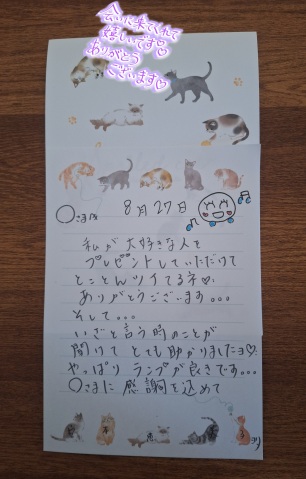 会いに来てくれて
嬉しいです♡
ありがとう
ございます♡
〇さま
8月27日
私が大好きな人を
プレゼントしていただけて
とことんツイてるネ♡
ありがとうございます...
そして...
いざと言う時のことが
聞けてとても助かりましたョ♡
やっぱりランプが良きです...
〇さまに感謝を込めて